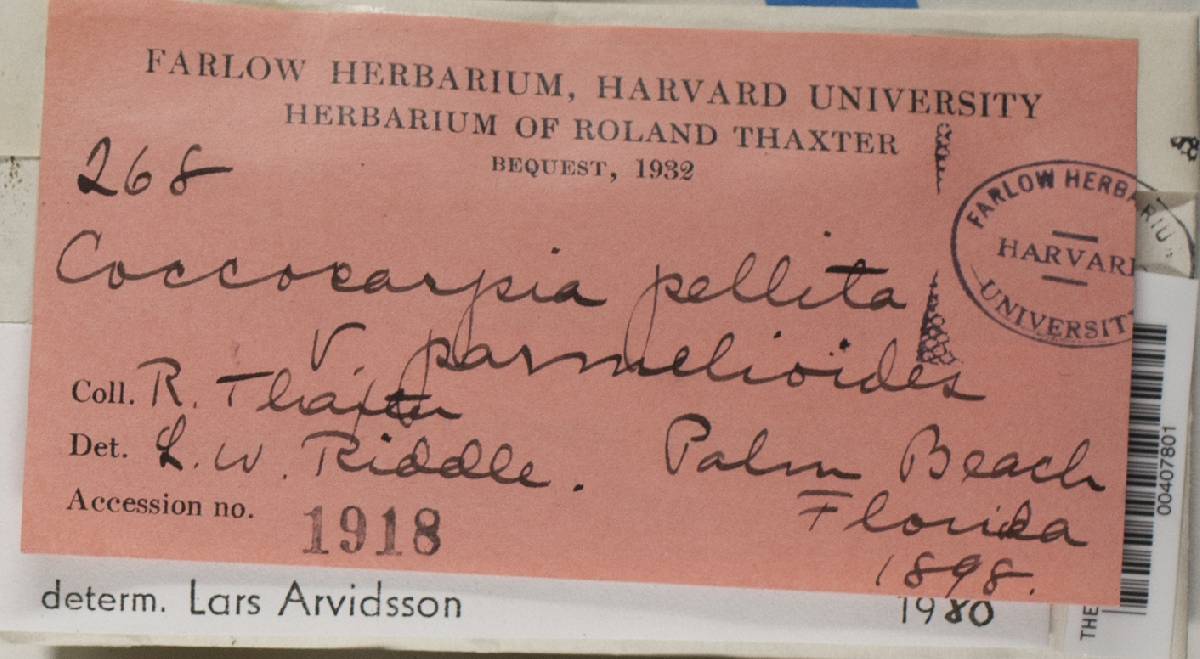 FARLOW HERBARIUM, HARVARD UNIVERSITY
HERBARIUM OF ROLAND THAXTER
BEQUEST, 1932
268
FARLOW HERBARIUM
HARVARD
UNIVERSITY
Coccocarpia pellita
v. parmelioides
Coll. R. Thaxter
Det. L. W. Riddle.
Palm Beach
Florida
1898.
Accession no. 1918
determ. Lars Arvidsson 1980
00407801
THE